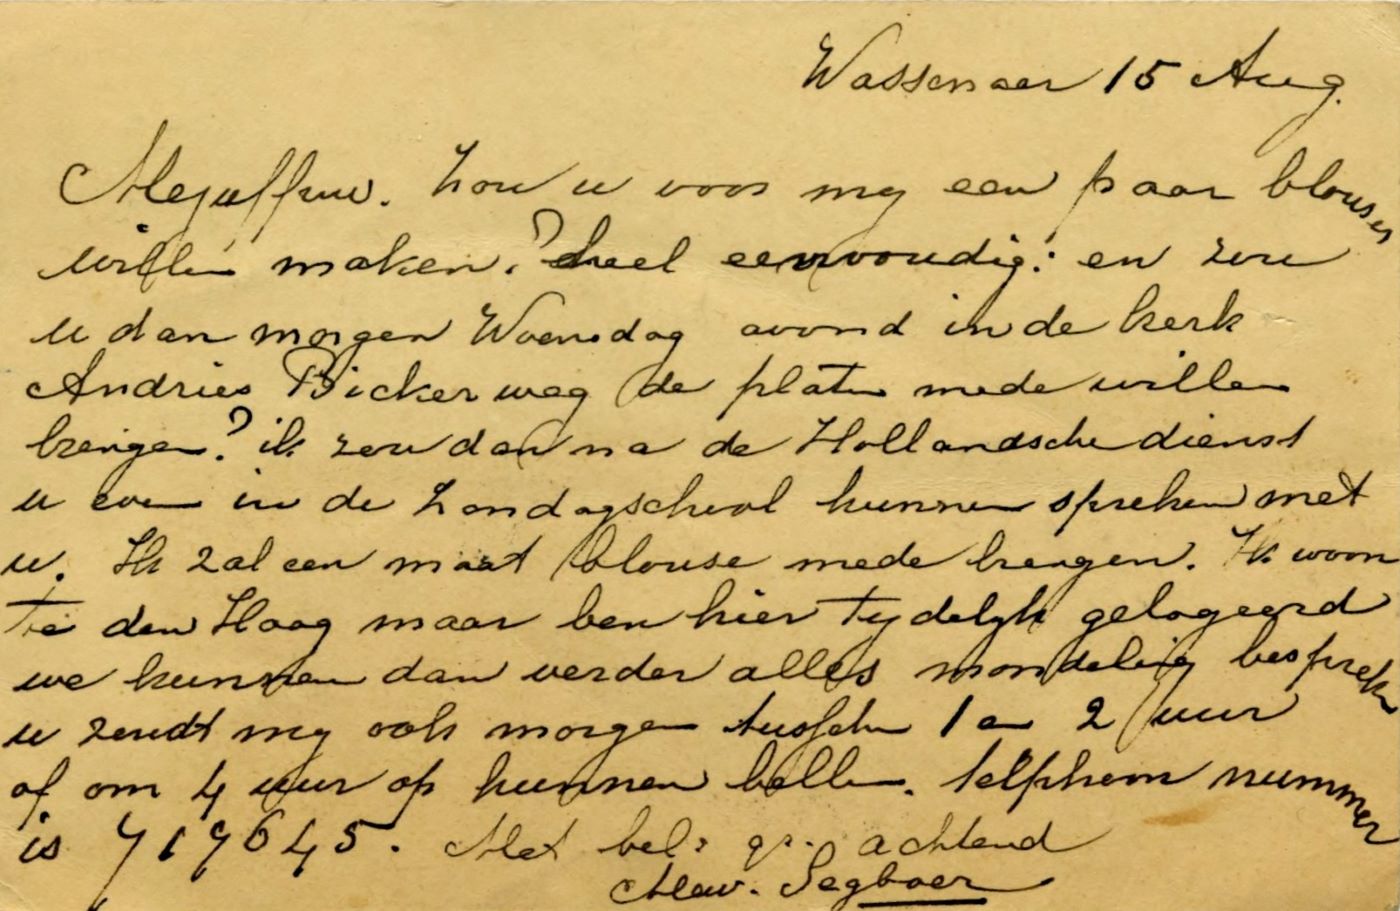 Wassenaar 15 Aug.
Mejuffruw. Zou u voor my een paar blouses
willen maken.? heel eenvoudig: en zou
u dan morgen Woensdag avond in de kerk
Andries Bickerweg de platen mede willen
brengen.? ik zou dan na de Hollandsche dienst
u even in de Zondagschool kunnen spreken met
u. Ik zal een maat blouse mede brengen. Ik woon
te den Haag maar ben hier tydelyk gelogeerd
we kunnen dan verder alles mondeling bespreken
u zoudt my ook morgen tusschen 1 en 2 uur
of om 4 uur op kunnen bellen. telphoon nummer
is 717645. Met bel. gr. achtend
Mew. Segboer